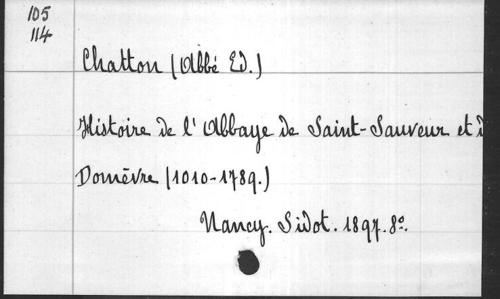 105
114
Chatton (Abbé Ed.)
Histoire de l'Abbaye de Saint-Sauveur et d
Domèvre (1010-1789.)
Nancy. Sidot. 1897. 8º.